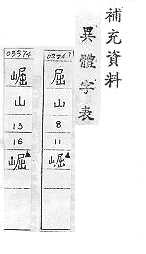 補充資料
異體字表
山
8
11
崛
05374
山
13
16
崛